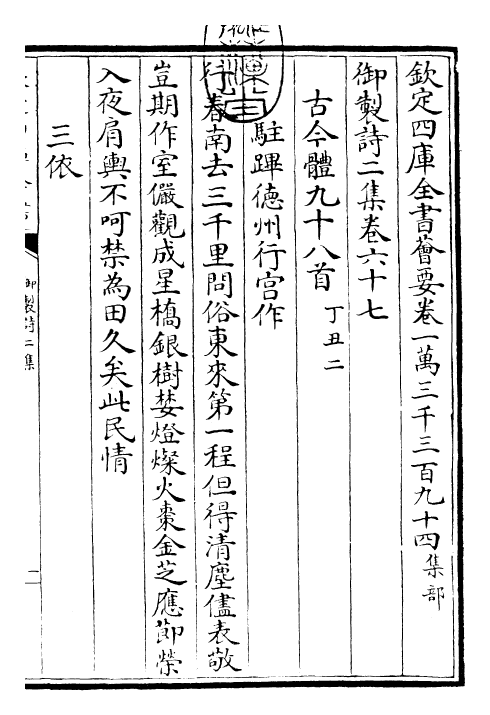 欽定四庫全書薈要卷一萬三千三百九十四集部
御製詩二集卷六十七
古今體九十八首丁丑二
駐蹕德州行宮作
行春南去三千里問俗東來第一程但得清塵儘表敬
豈期作室儼觀成星橋銀樹婪燈燦火棗金芝應節榮
入夜肩輿不呵禁為田久矣此民情
三依
御製詩二集